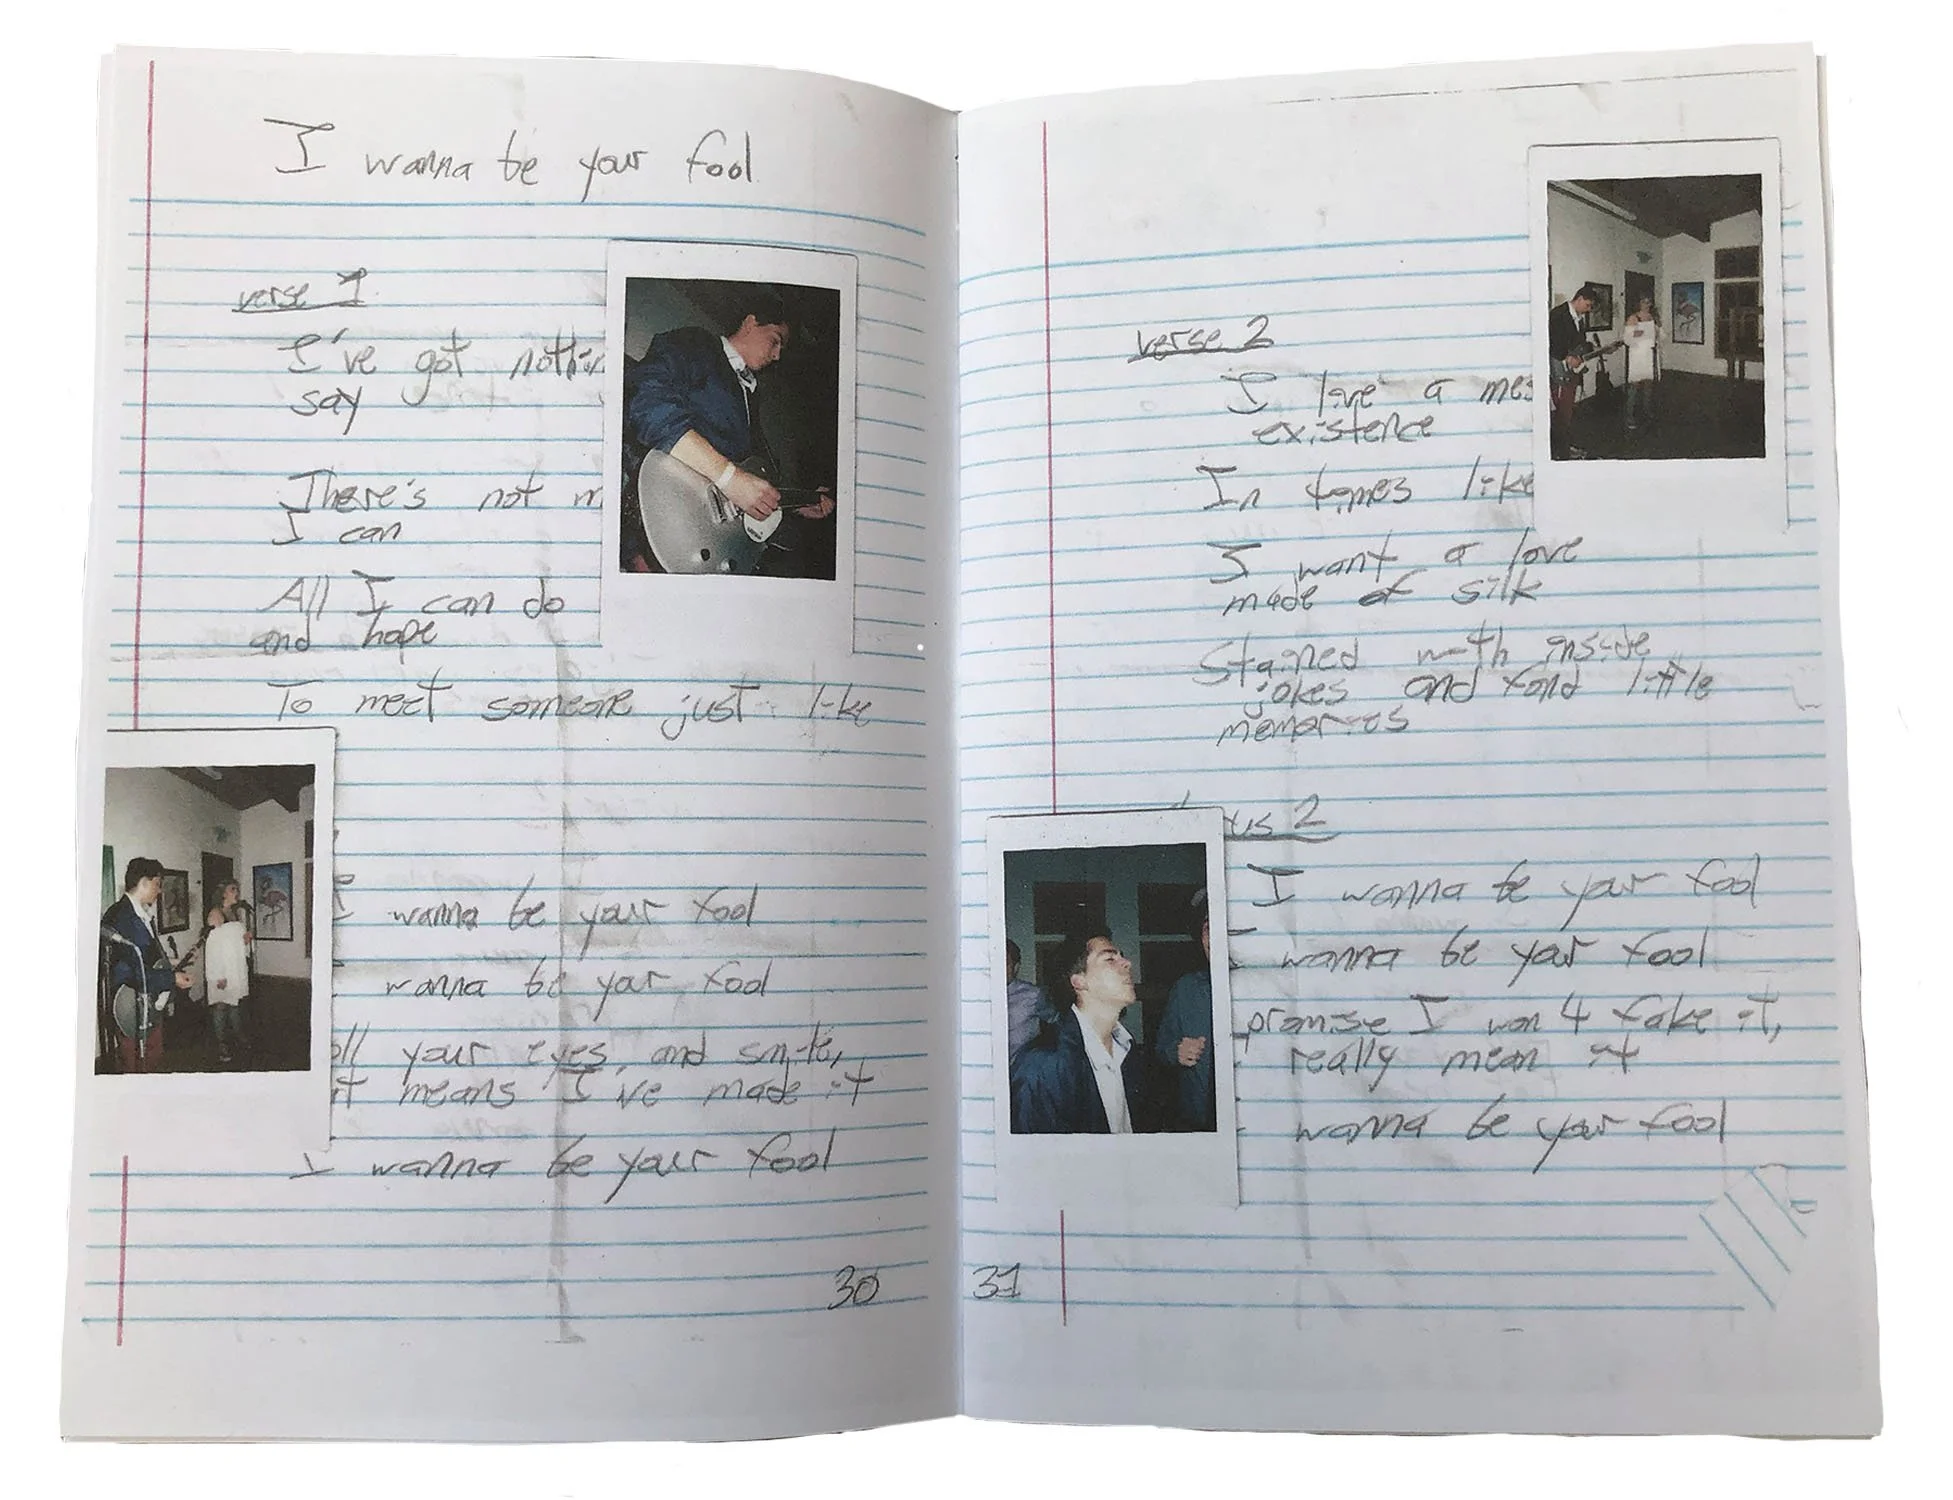 I wanna be your fool
verse 1
I've got nothin
say
There's not m
I can
All I can do
and hope
To meet someone just like
wanna be your fool
wanna be your fool
oll your eyes, and smile,
it means I've made it
I wanna be your fool
30
verse 2
I live a mes
existence
In times like
I want a love
made of silk
Stained with inside
jokes and fond little
memories
us 2
I wanna be your fool
I wanna be your fool
promise I won't fake it,
really mean it
wanna be your fool
31